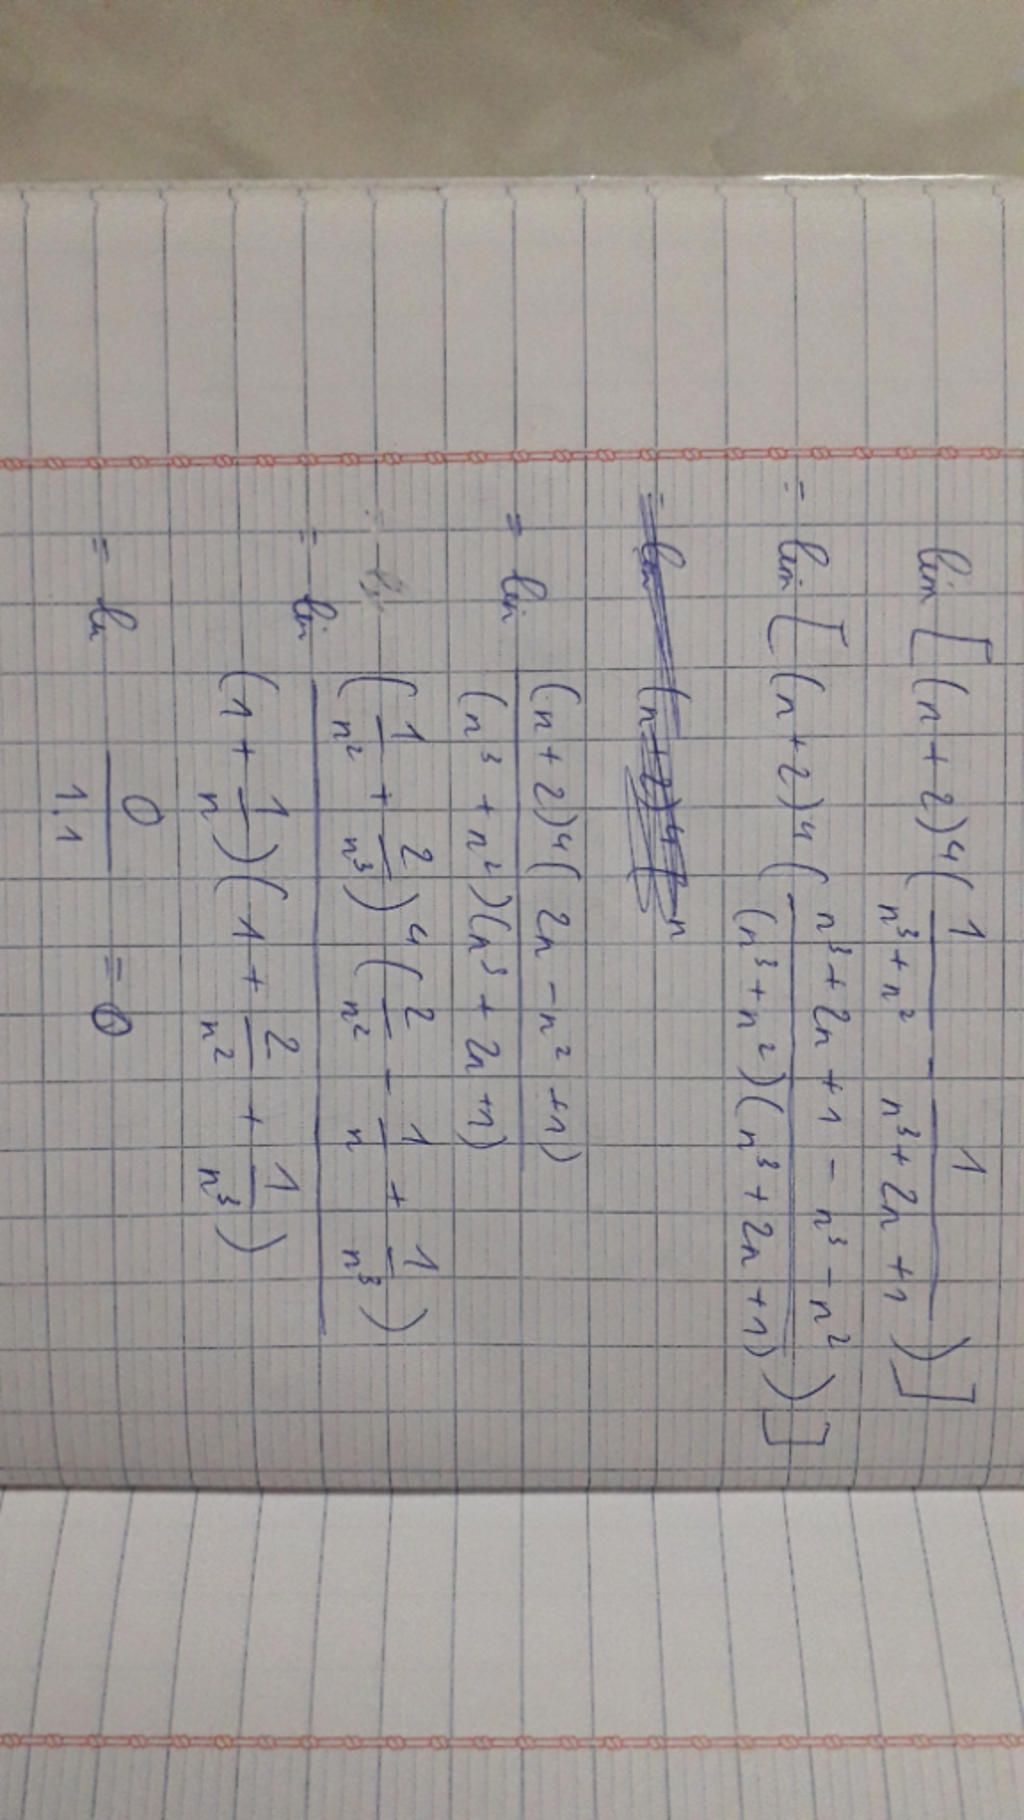 lim [ (n+2)⁴ ( 1/(n³+n²) - 1/(n³+2n+1) ) ]
= lim [ (n+2)⁴ ( (n³+2n+1-n³-n²)/((n³+n²)(n³+2n+1)) ) ]
= lim (n+2)⁴
= lim ((n+2)⁴(2n-n²+1))/((n³+n²)(n³+2n+1))
= lim ((1/n²+2/n³)⁴(2/n²-1/n+1/n³))/((1+1/n)(1+2/n²+1/n³))
= lim 0/1.1 = 0